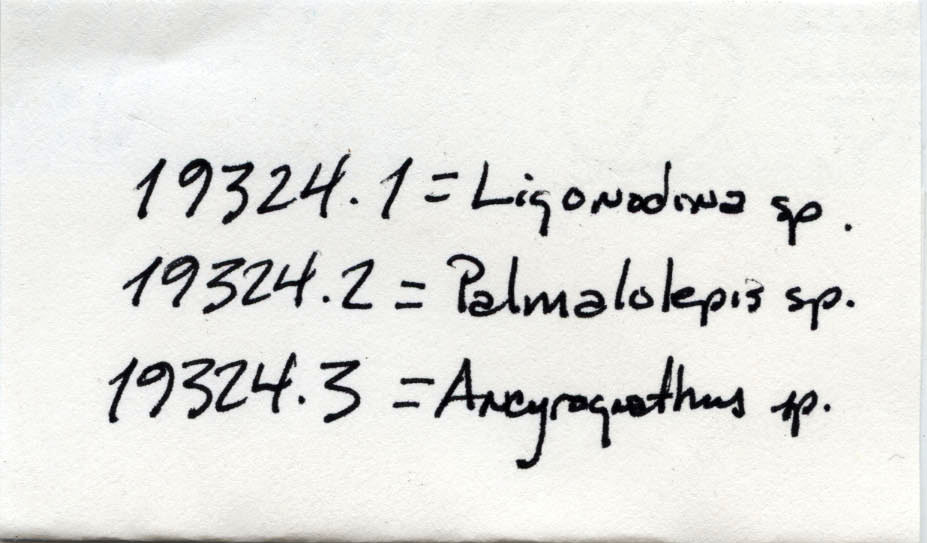 19324.1 = Ligonodina sp.
19324.2 = Palmalolepis sp.
19324.3 = Ancyrognathus sp.